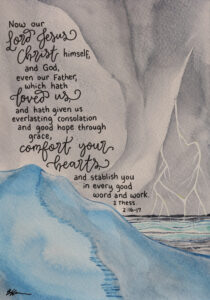 Now our
Lord Jesus
Christ himself,
and God,
even our Father,
which hath
loved us
and hath given us
everlasting consolation
and good hope through
grace,
comfort your
hearts
and stablish you
in every good
word and work.
2 Thess.
2:16-17